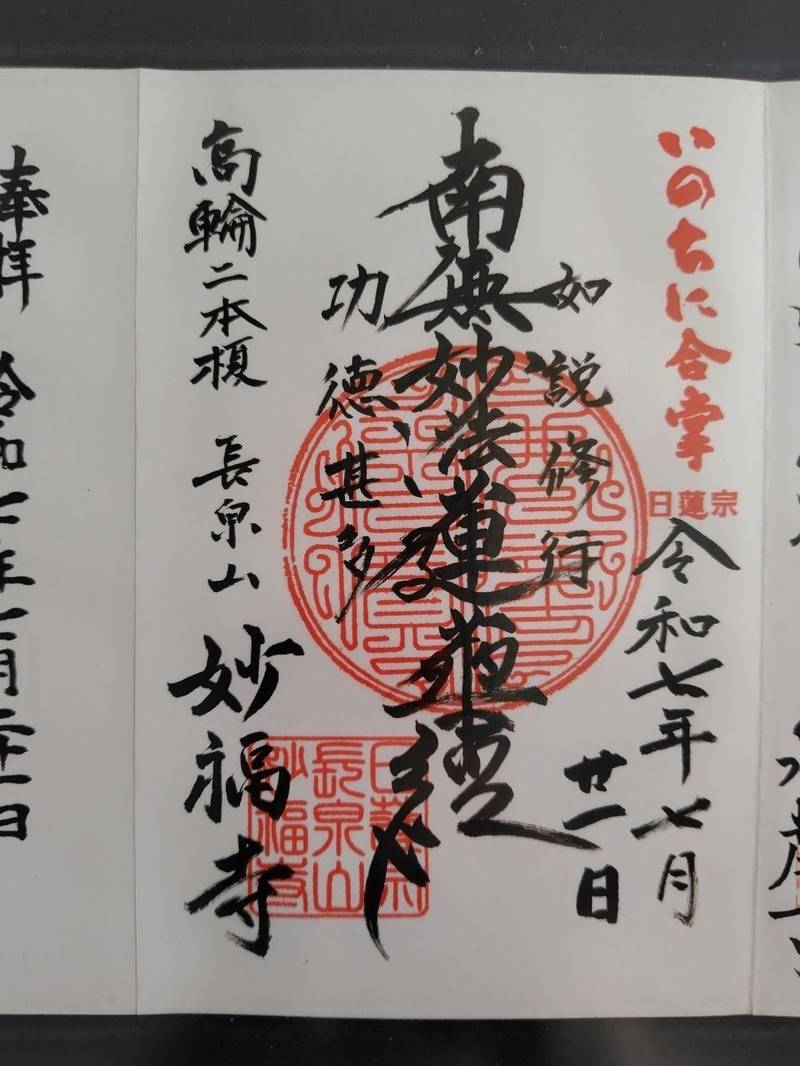 いのちに合掌
日蓮宗
令和七年七月
廿一日
如説修行
南無妙法蓮華経
功徳甚多
高輪二本榎 長泉山
妙福寺
日蓮宗
長泉山
妙福寺
奉拝 令和七年七月二十一日